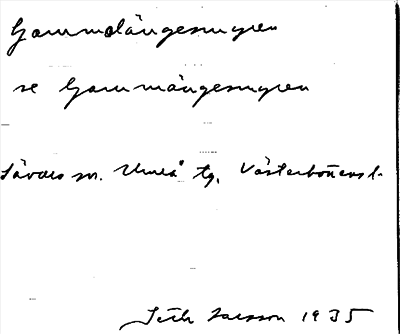 Gammdängesmyren
se Gammängesmyren
Sävars sn. Umeå tg. Västerbottens l.
Seth Larsson 1935